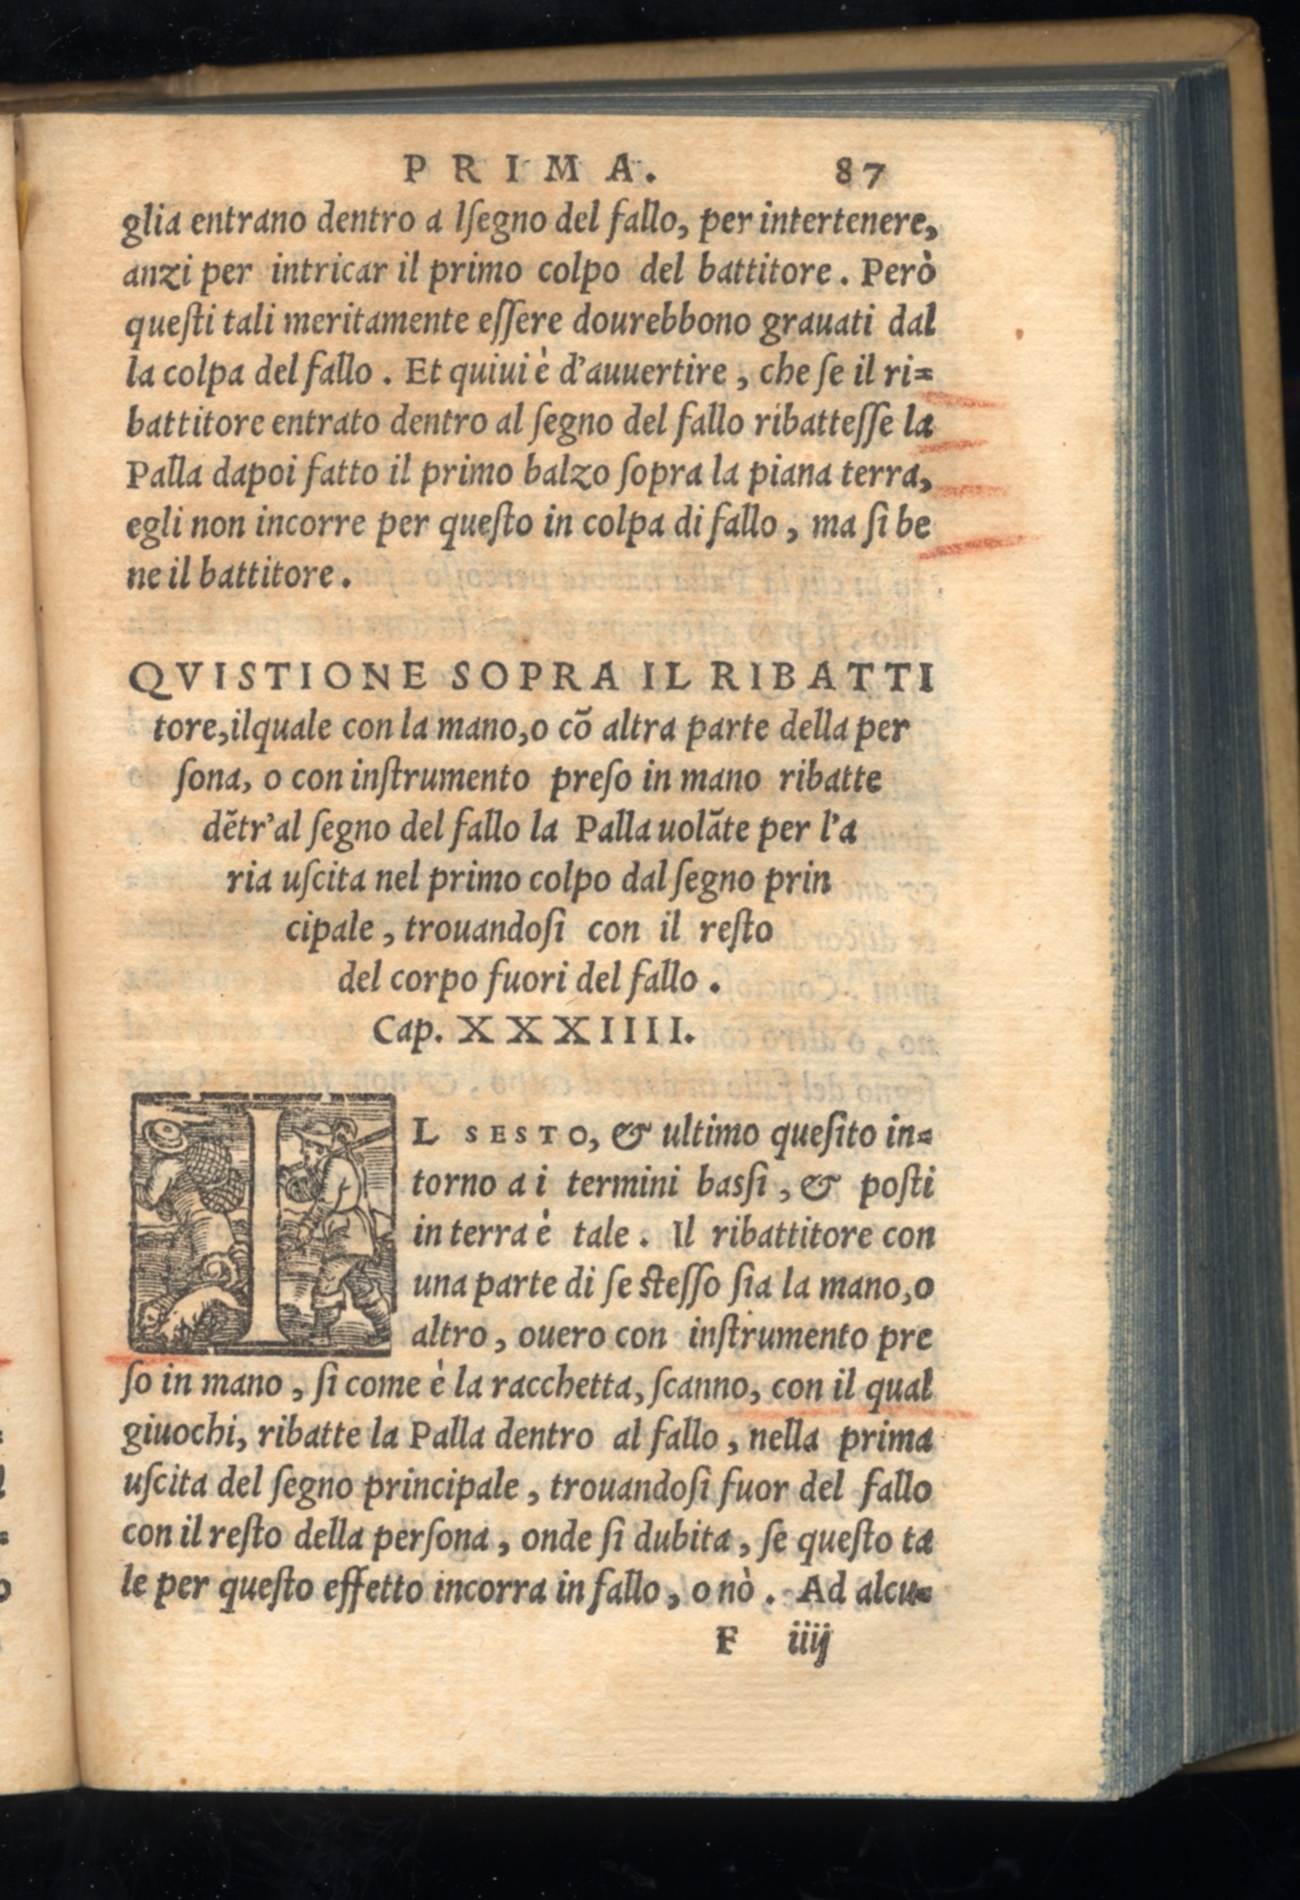 PRIMA. 87
glia entrano dentro a lſegno del fallo, per intertenere,
anzi per intricar il primo colpo del battitore. Però
queſti tali meritamente eſſere dourebbono grauati dal
la colpa del fallo. Et quiui è d'auuertire, che ſe il ri=
battitore entrato dentro al ſegno del fallo ribatteſſe la
Palla dapoi fatto il primo balzo ſopra la piana terra,
egli non incorre per queſto in colpa di fallo, ma ſi be
ne il battitore.
QVISTIONE SOPRA IL RIBATTI
tore, ilquale con la mano, o cõ altra parte della per
ſona, o con inſtrumento preſo in mano ribatte
dẽtr'al ſegno del fallo la Palla uolãte per l'a
ria uſcita nel primo colpo dal ſegno prin
cipale, trouandoſi con il reſto
del corpo fuori del fallo.
Cap. XXXIIII.
IL SESTO, & ultimo queſito in=
torno a i termini baſſi, & poſti
in terra è tale. Il ribattitore con
una parte di ſe ſteſſo ſia la mano, o
altro, ouero con inſtrumento pre
ſo in mano, ſi come è la racchetta, ſcanno, con il qual
giuochi, ribatte la Palla dentro al fallo, nella prima
uſcita del ſegno principale, trouandoſi fuor del fallo
con il reſto della perſona, onde ſi dubita, ſe queſto ta
le per queſto effetto incorra in fallo, o nò. Ad alcu=
F iiij